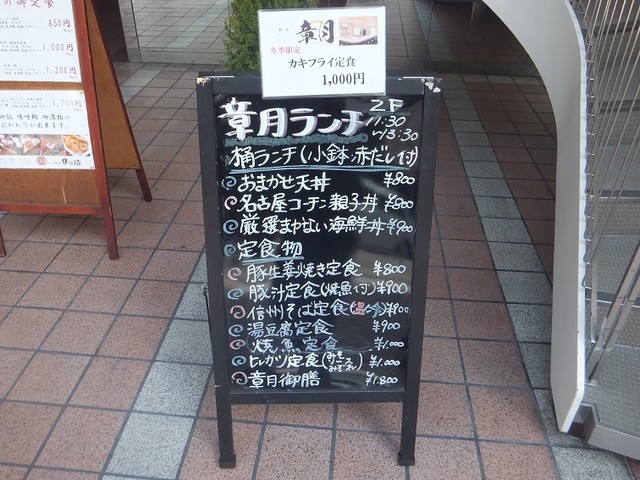 章月
冬季限定
カキフライ定食
1,000円
章月ランチ 2F 11:30〜13:30
桶ランチ(小鉢・赤だし付)
おまかせ天丼 ¥800
名古屋コーチン親子丼 ¥900
厳選まかない海鮮丼 ¥900
定食物
豚生姜焼き定食 ¥800
豚汁定食(焼魚付) ¥900
信州そば定食(温・冷) ¥900
湯豆腐定食 ¥900
焼魚定食 ¥1.000
ヒレカツ定食(みそ みぞれ) ¥1.000
章月御膳 ¥1.800
の御定食
850円
1,000円
1,200円
1,700円